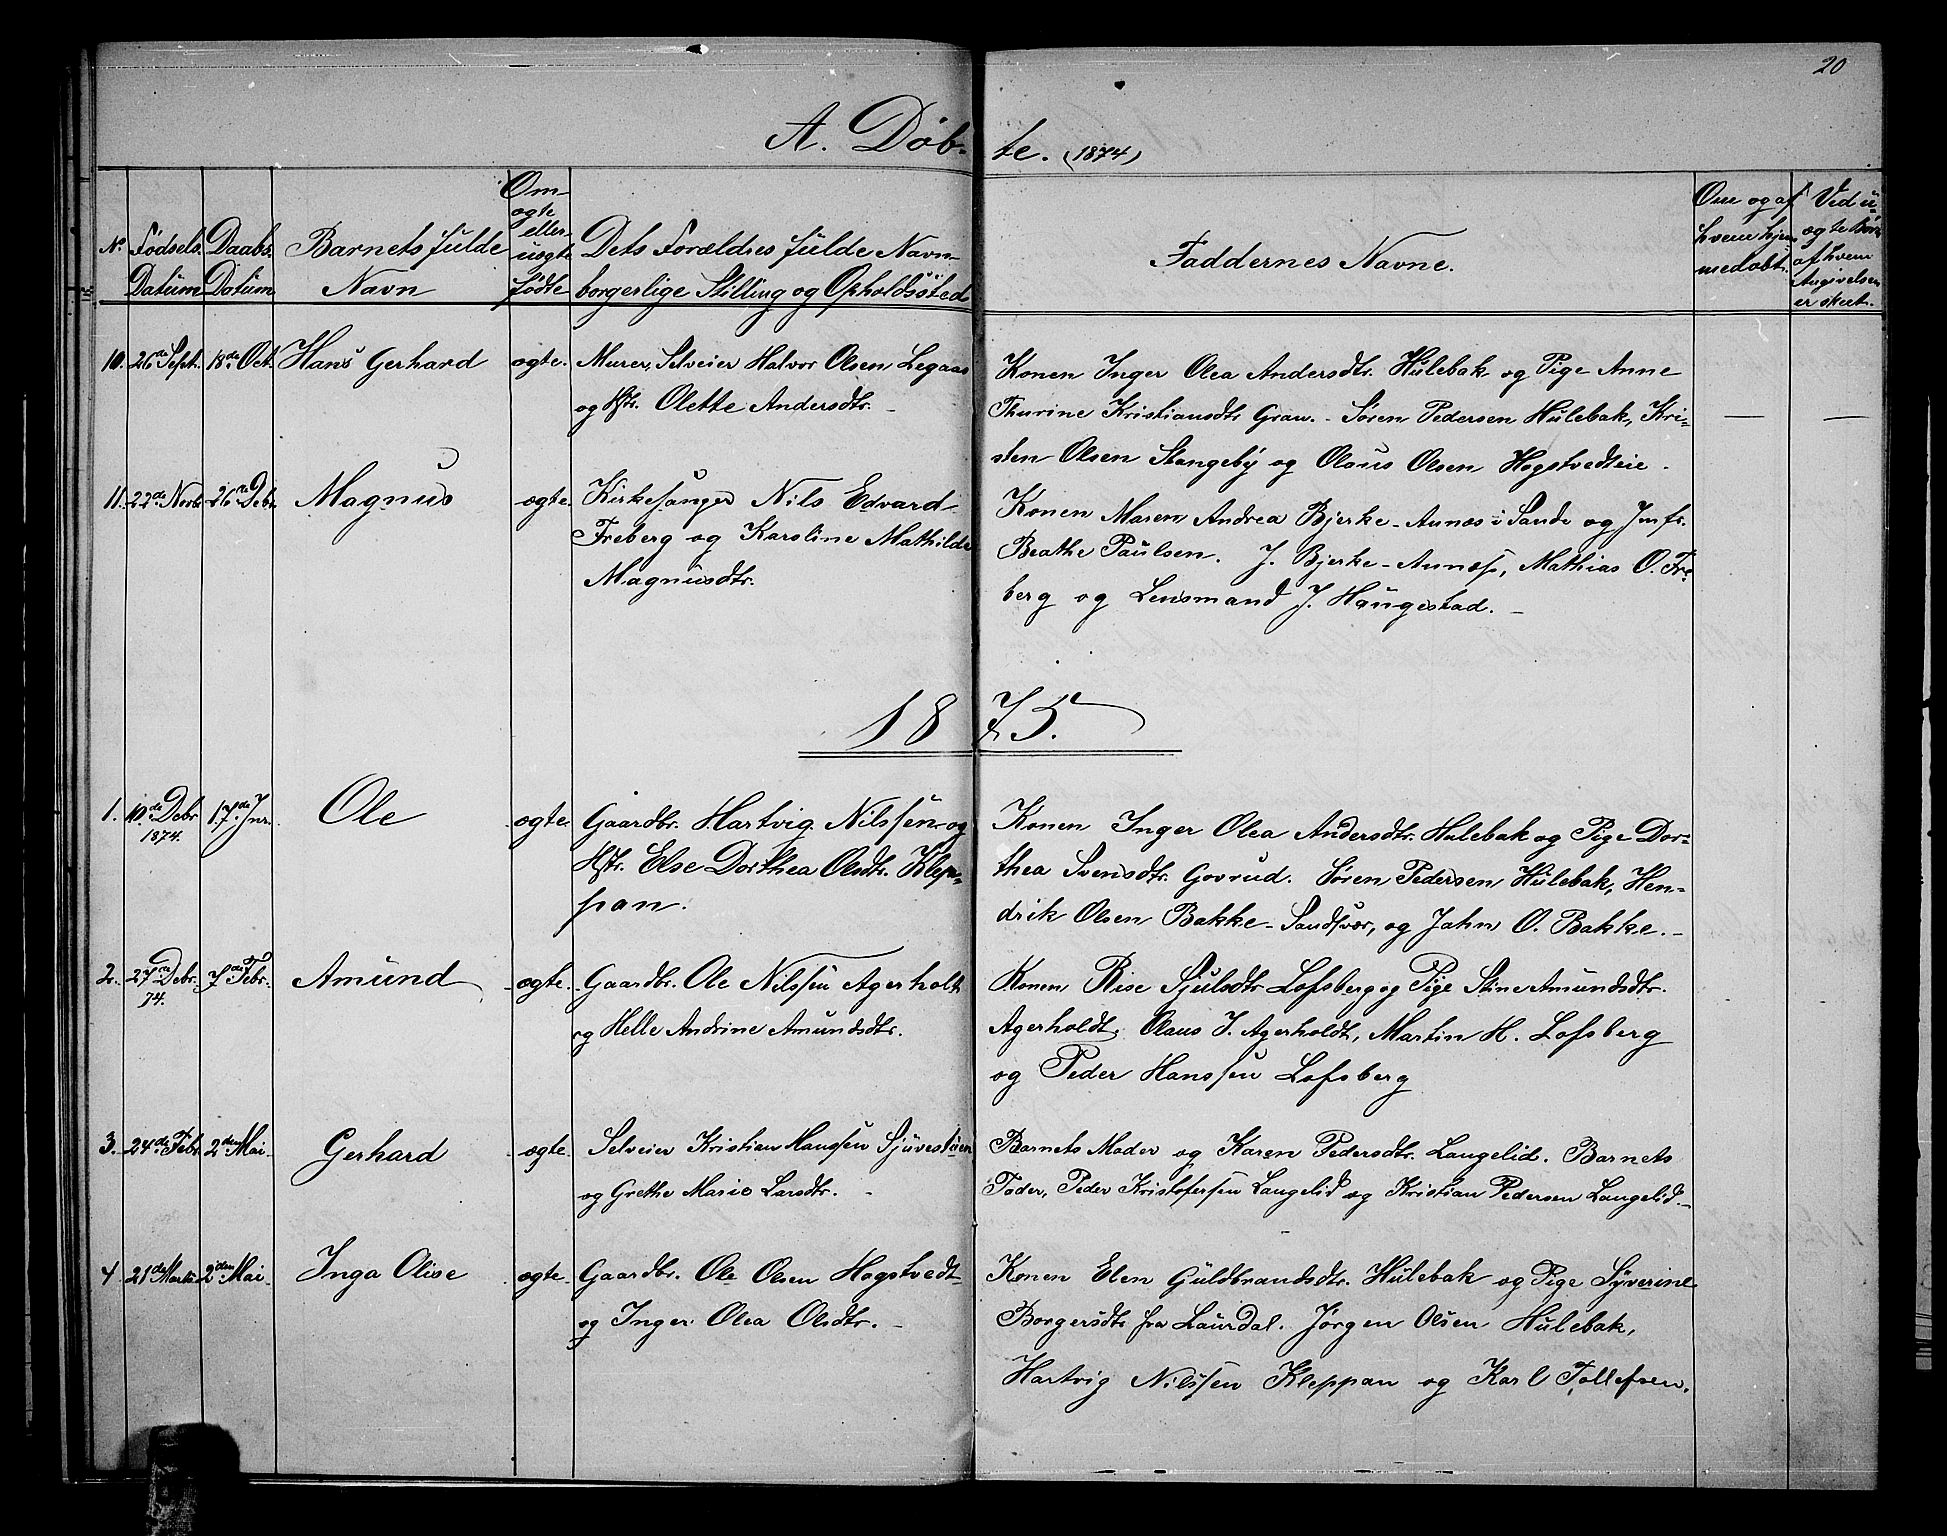 20
A. Døbte. (1874)
No. Fødsels Datum
Daabs Datum
Barnets fulde Navn
Om ægte eller uægte fødte
Dets Forældres fulde Navn borgerlige Stilling og Opholdssted
Faddernes Navne.
Om og af hvem hjemmedøbt.
Ved uægte Børn af hvem Angivelsen er skeet.
10. 26de Sept. 18de Oct. Hans Gerhard ægte. Murer, Selveier Halvor Olsen Legaas
og Hstr. Olette Andersdtr. -
Konen Inger Olea Andersdtr. Hulebak og Pige Anne
Thurine Kristiansdtr Grav. - Søren Pedersen Hulebak, Kri-
sten Olsen Stangeby og Olaus Olsen Hogstvedteie.
11. 22de Novb. 26de Debr. Magnus ægte. Kirkesanger Nils Edvard
Freberg og Karoline Mathilde
Magnusdtr.
Konen Maren Andrea Bjerke-Aunæs i Sande og Jmfr.
Beathe Paulsen. J. Bjerke-Aunæs, Mathias O. Fre-
berg og Lensmand J. Haugestad. -
1875.
1. 10de Debr. 1874. 17de Jnr. Ole ægte. Gaardbr. Hartvig Nilssen og
Hstr. Else Dorthea Olsdtr. Klep-
pan.
Konen Inger Olea Andersdtr. Hulebak og Pige Dor-
thea Svensdtr. Govrud. Søren Pedersen Hulebak, Hen-
drik Olsen Bakke-Sandsvær, og Jahn O. Bakke. -
2. 27de Debr. 74. 7de Febr. Amund ægte. Gaardbr. Ole Nilssen Agerholt
og Helle Andrine Amundsdtr.
Konen Rise Sjulsdtr Lofsberg og Pige Stine Amundsdtr.
Agerholdt. Olaus J. Agerholdt, Martin H. Lofsberg
og Peder Hanssen Lofsberg
3. 24de Febr 2den Mai Gerhard ægte. Selveier Kristian Hanssen Sjuvestøen
og Grethe Marie Larsdtr. -
Barnets Moder og Karen Pedersdtr. Langelid. Barnets
Fader, Peder Kristofersen Langelid og Kristian Pedersen Langelid. -
4 21de Marts 2den Mai Inga Olise ægte. Gaardbr. Ole Olsen Hogstvedt
og Inger Olea Olsdtr. -
Konen Elen Guldbrandsdtr. Hulebak og Pige Syverine
Borgersdtr fra Laurdal. Jørgen Olsen Hulebak,
Hartvig Nilssen Kleppan og Karl Tollefsen.